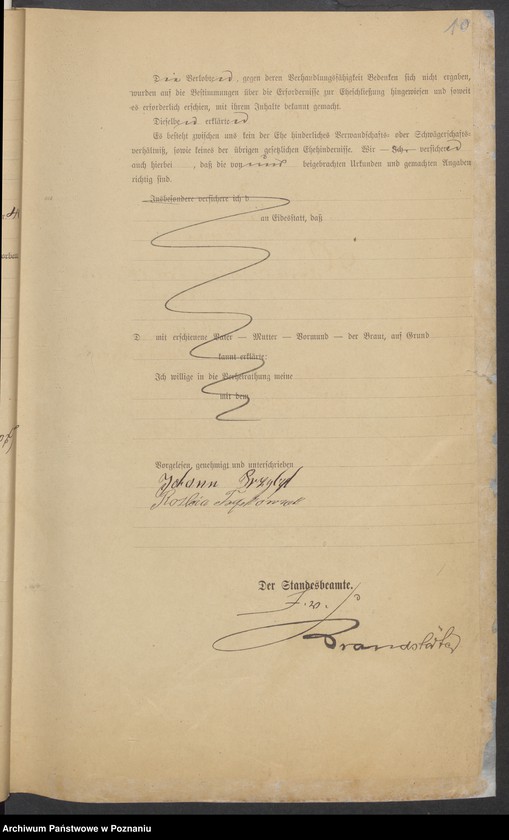 10
Die Verlobten, gegen deren Verhandlungsfähigkeit Bedenken sich nicht ergaben,
wurden auf die Bestimmungen über die Erfordernisse zur Eheschließung hingewiesen und soweit
es erforderlich erschien, mit ihrem Inhalte bekannt gemacht.
Dieselben erklärten
Es besteht zwischen uns kein der Ehe hinderliches Verwandtschafts- oder Schwägerschafts-
verhältniß, sowie keines der übrigen gesetzlichen Ehehindernisse. Wir — Ich — versichern
auch hierbei, daß die von uns beigebrachten Urkunden und gemachten Angaben
richtig sind.
Insbesondere versichere ich d
an Eidesstatt, daß
D mit erschienene Vater — Mutter — Vormund — der Braut, auf Grund
kannt erklärte:
Ich willige in die Verheirathung meine
mit dem
Vorgelesen, genehmigt und unterschrieben
Johann
Der Standesbeamte.
J. v.
Brandstäter
Archiwum Państwowe w Poznaniu